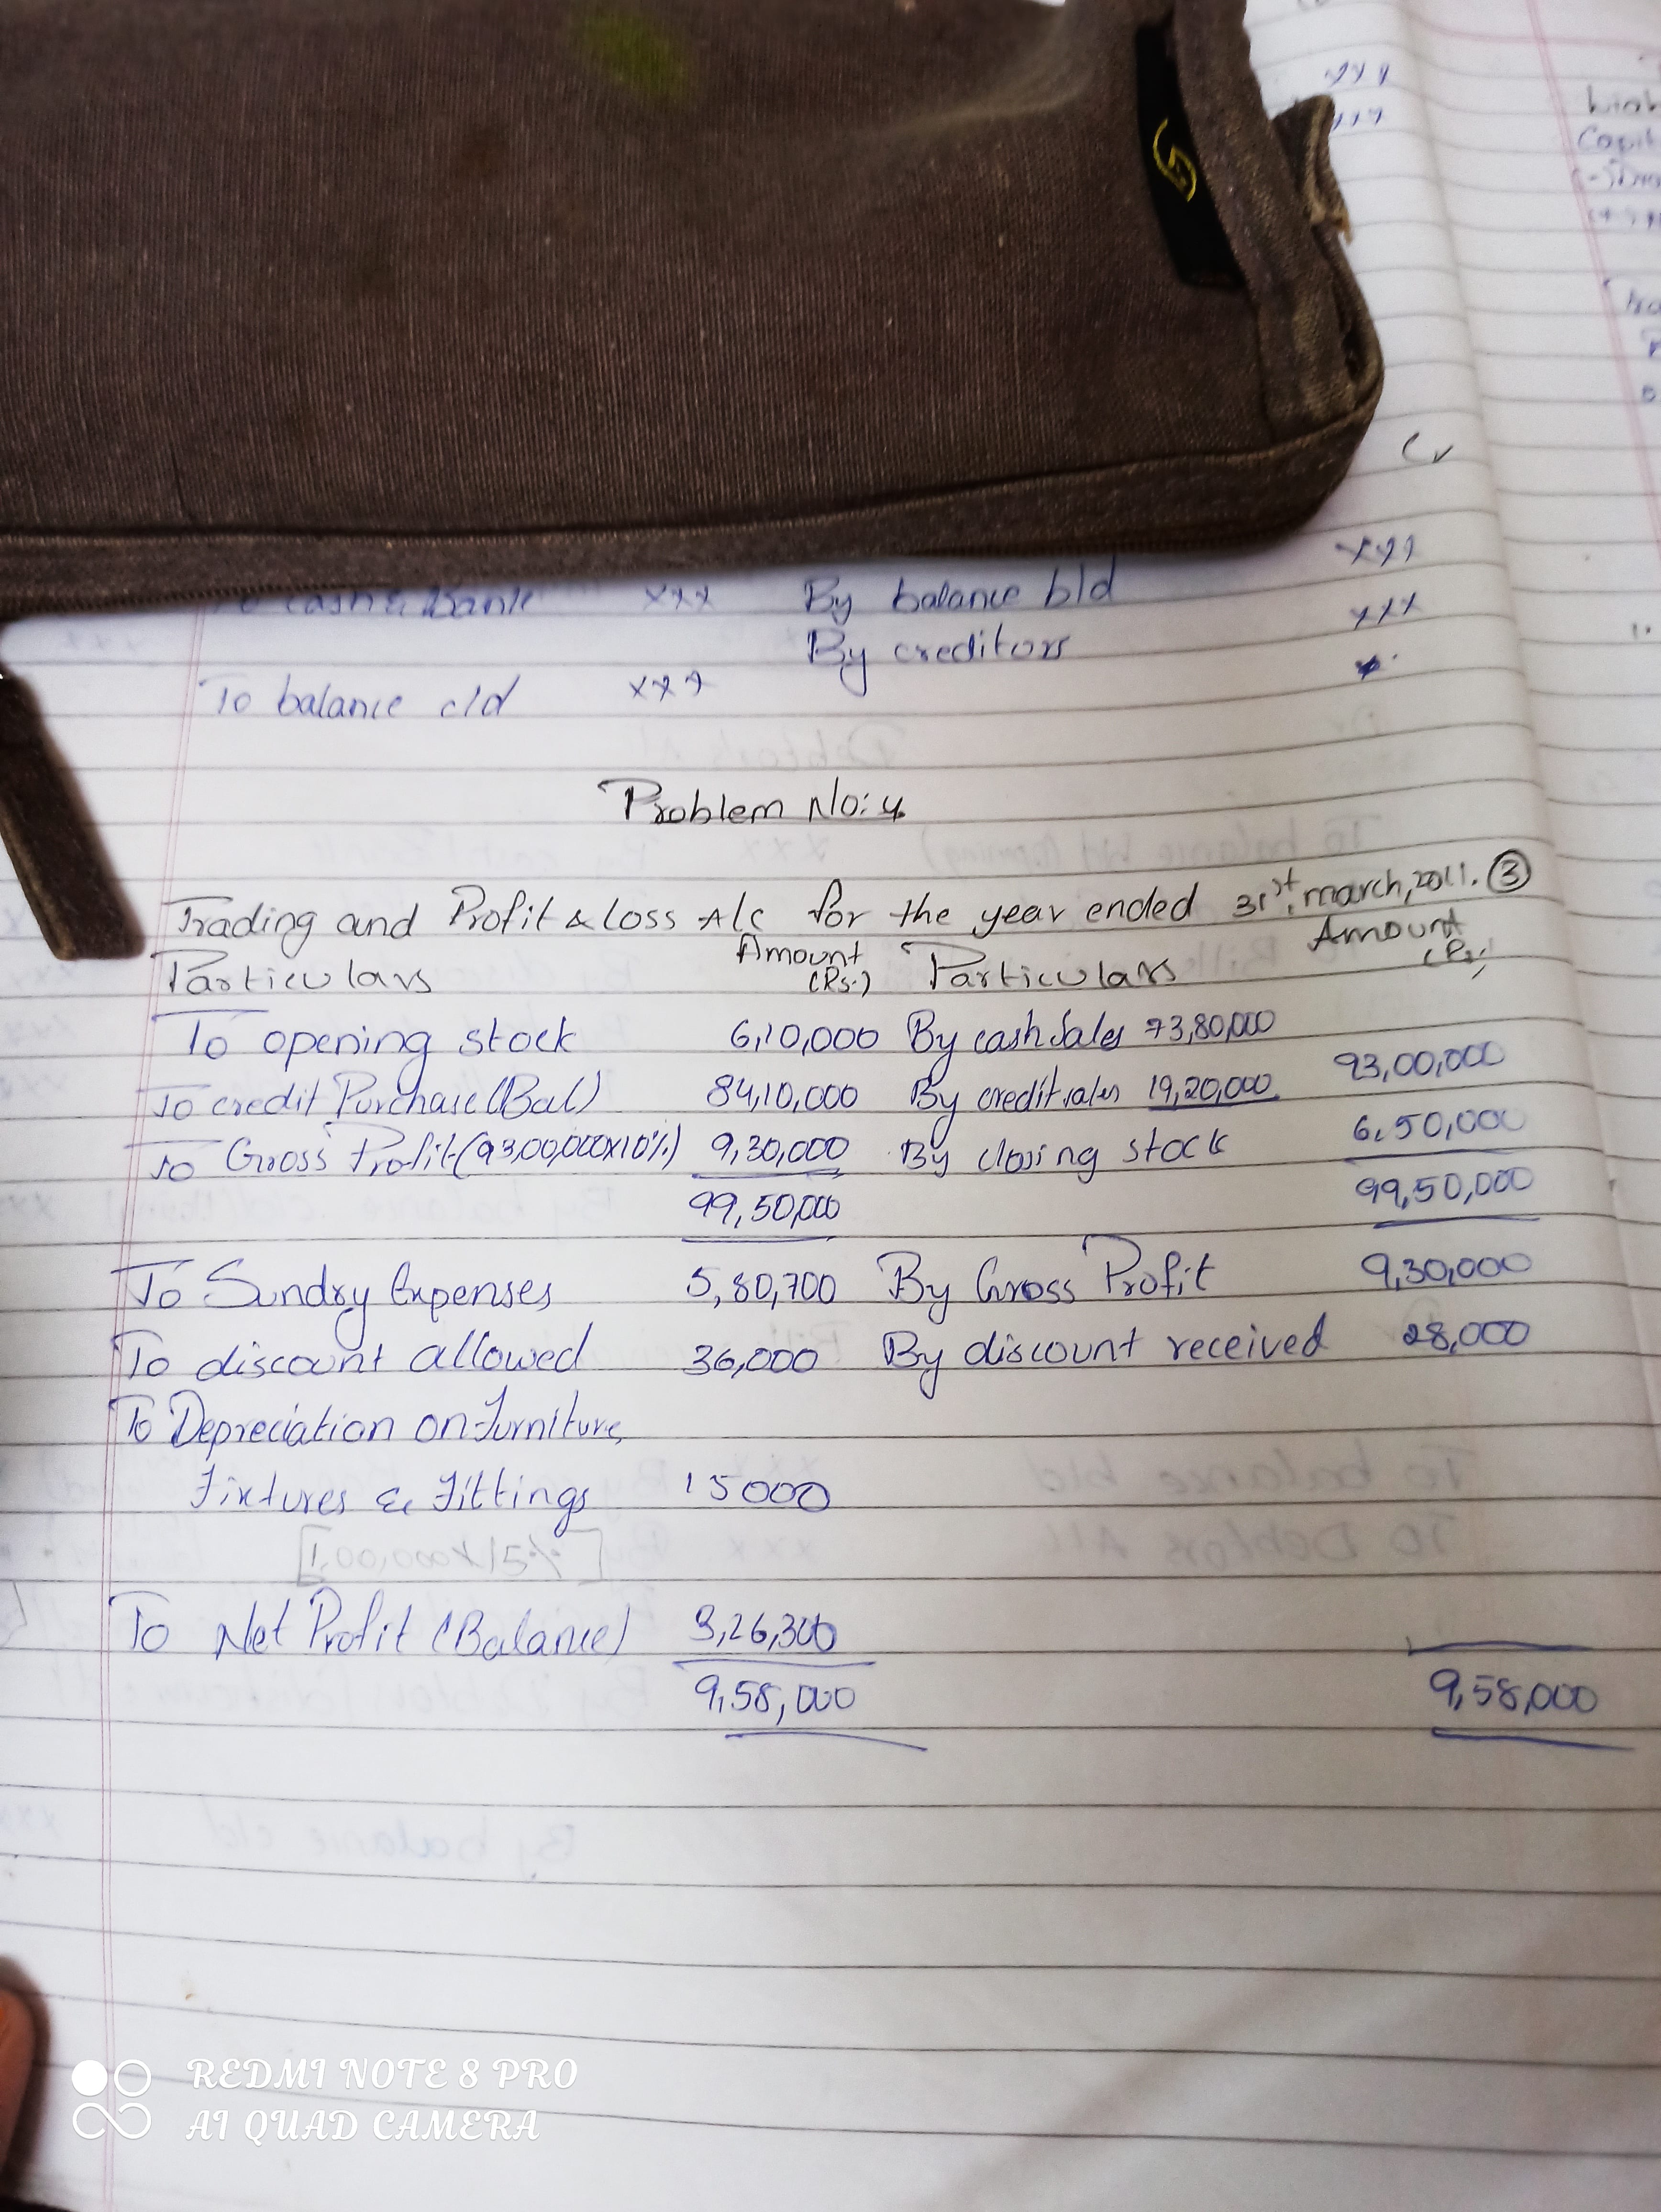 xxx
xxx
Cr
xxx
To cash & Bank xxx By balance b/d xxx
By creditors
To balance c/d xxx
Problem No: 4
Trading and Profit & Loss A/c for the year ended 31st, march, 2011. 3
Particulars Amount (Rs.) Particulars Amount (Rs.)
To opening stock 6,10,000 By cash sales 73,80,000
To credit Purchase (Bal) 84,10,000 By credit sales 19,20,000 93,00,000
To Gross Profit (93,00,000x10%) 9,30,000 By closing stock 6,50,000
99,50,000 99,50,000
To Sundry Expenses 5,80,700 By Gross Profit 9,30,000
To discount allowed 36,000 By discount received 28,000
To Depreciation on Furniture,
Fixtures & Fittings 15000
[1,00,000x15%]
To Net Profit (Balance) 3,26,300
9,58,000 9,58,000
REDMI NOTE 8 PRO
AI QUAD CAMERA